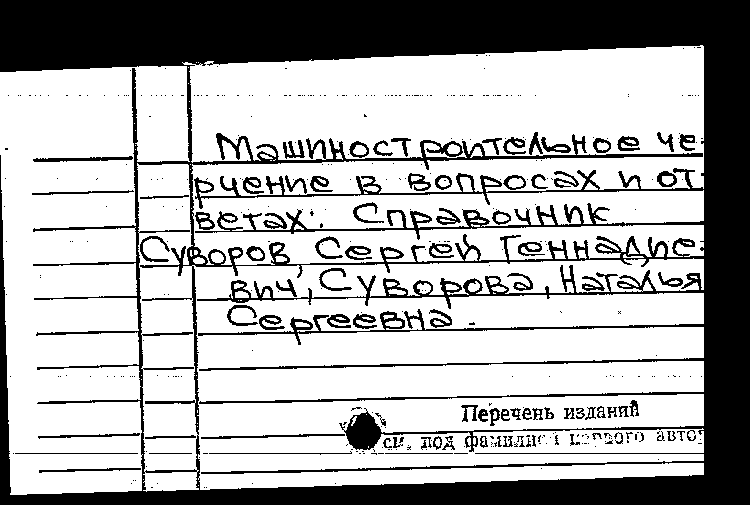 Машиностроительное че-
рчение в вопросах и от-
ветах: Справочник
Суворов, Сергей Геннадие-
вич, Суворова, Наталья
Сергеевна.
Перечень изданий
см. под фамилией первого авто